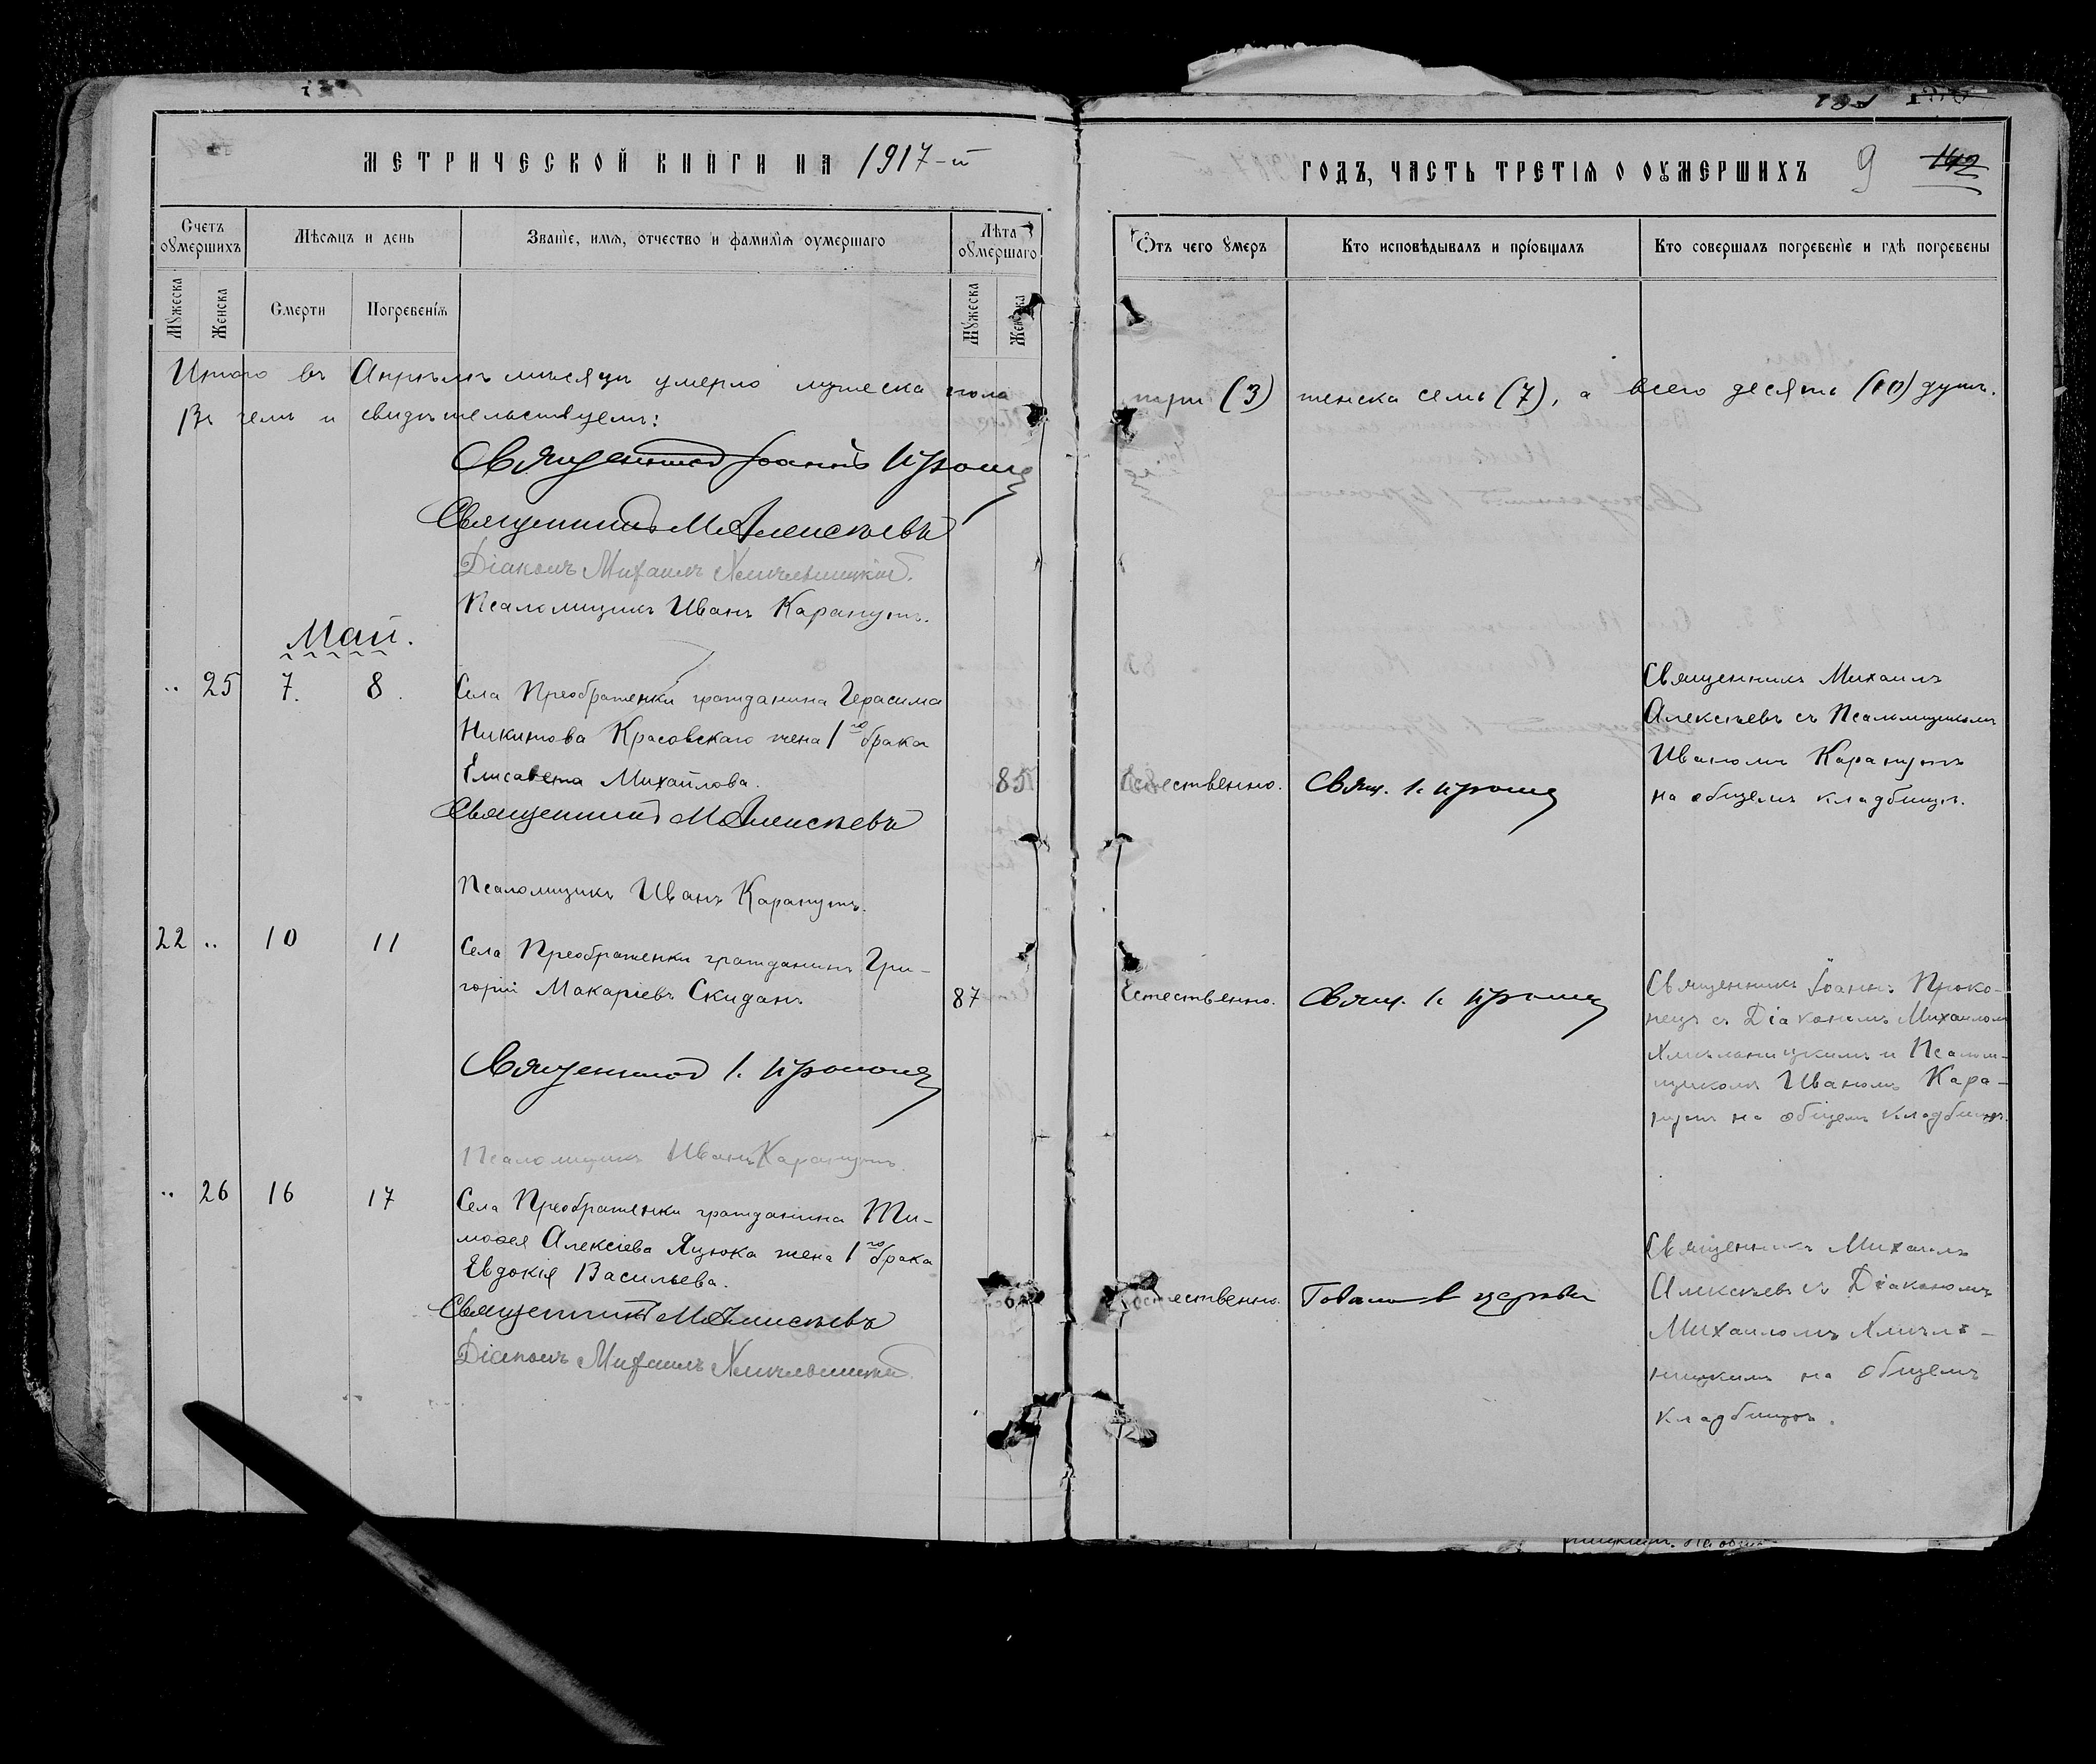 МЕТРИЧЕСКОЙ КНИГИ НА 1917-й
ГОДЪ, ЧАСТЬ ТРЕТІЯ О ОУМЕРШИХЪ 9 142
Счетъ оумершихъ
Мѣсяцъ и день
Званіе, имя, отчество и фамилія оумершаго
Лѣта оумершаго
Отъ чего умеръ
Кто исповѣдывалъ и пріобщалъ
Кто совершалъ погребеніе и гдѣ погребены
Мужеска
Женска
Смерти
Погребенія
Мужеска
Женска
Итого въ Апрѣлѣ мѣсяцѣ умерло мужеска пола три (3) женска семь (7), а всего десять (10) душъ.
Въ чемъ и свидѣтельствуемъ:
Священникъ Іоаннъ Прокопец
Священникъ М Алексѣевъ
Діаконъ Михаилъ Хмѣльницкій.
Псаломщикъ Иванъ Карапутъ.
Май.
.. 25 7. 8.
Села Преображенки гражданина Герасима
Никитова Красовскаго жена 1го брака
Елисавета Михайлова.
85
Естественно.
Свящ. І. Прокопец
Священникъ Михаилъ
Алексѣевъ съ Псаломщикомъ
Иваномъ Карапутъ
на общемъ кладбищѣ.
Священникъ М Алексѣевъ
Псаломщикъ Иванъ Карапутъ.
22 .. 10 11
Села Преображенки гражданинъ Гри-
горій Макаріевъ Скиданъ
87
Естественно.
Свящ. І. Прокопец
Священникъ Іоаннъ Проко-
пецъ съ Діакономъ Михаиломъ
Хмѣльницкимъ и Псалом-
щикомъ Иваномъ Кара-
путъ на общемъ кладбищѣ.
Священникъ І. Прокопец
Псаломщикъ Иванъ Карапутъ.
.. 26 16 17
Села Преображенки гражданина Ти-
моѳея Алексіева Яцюка жена 1го брака
Евдокія Васильева.
Естественно.
Говѣла в церкви
Священникъ Михаилъ
Алексѣевъ съ Діакономъ
Михаиломъ Хмѣль-
ницкимъ на общемъ
кладбищѣ.
Священникъ М Алексѣевъ
Діаконъ Михаилъ Хмѣльницкій.